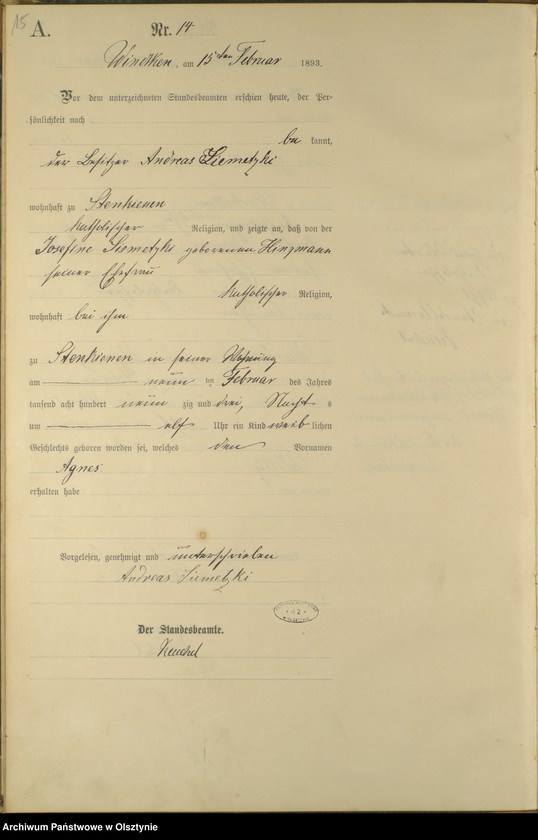 15
A. Nr. 14
Windtken, am 15ten Februar 1893.
Vor dem unterzeichneten Standesbeamten erschien heute, der Per-
sönlichkeit nach
be kannt,
der Besitzer Andreas Siemetzki
wohnhaft zu Stenkienen
katholischer Religion, und zeigte an, daß von der
Josefine Siemetzki geborenen Hinzmann
seiner Ehefrau
katholischer Religion,
wohnhaft bei ihm
zu Stenkienen in seiner Wohnung
am neun ten Februar des Jahres
tausend acht hundert neun zig und drei, Nacht s
um elf Uhr ein Kind weib lichen
Geschlechts geboren worden sei, welches den Vornamen
Agnes
erhalten habe
Vorgelesen, genehmigt und unterschrieben
Andreas Siemetzki
Der Standesbeamte.
Archiwum Państwowe w Olsztynie